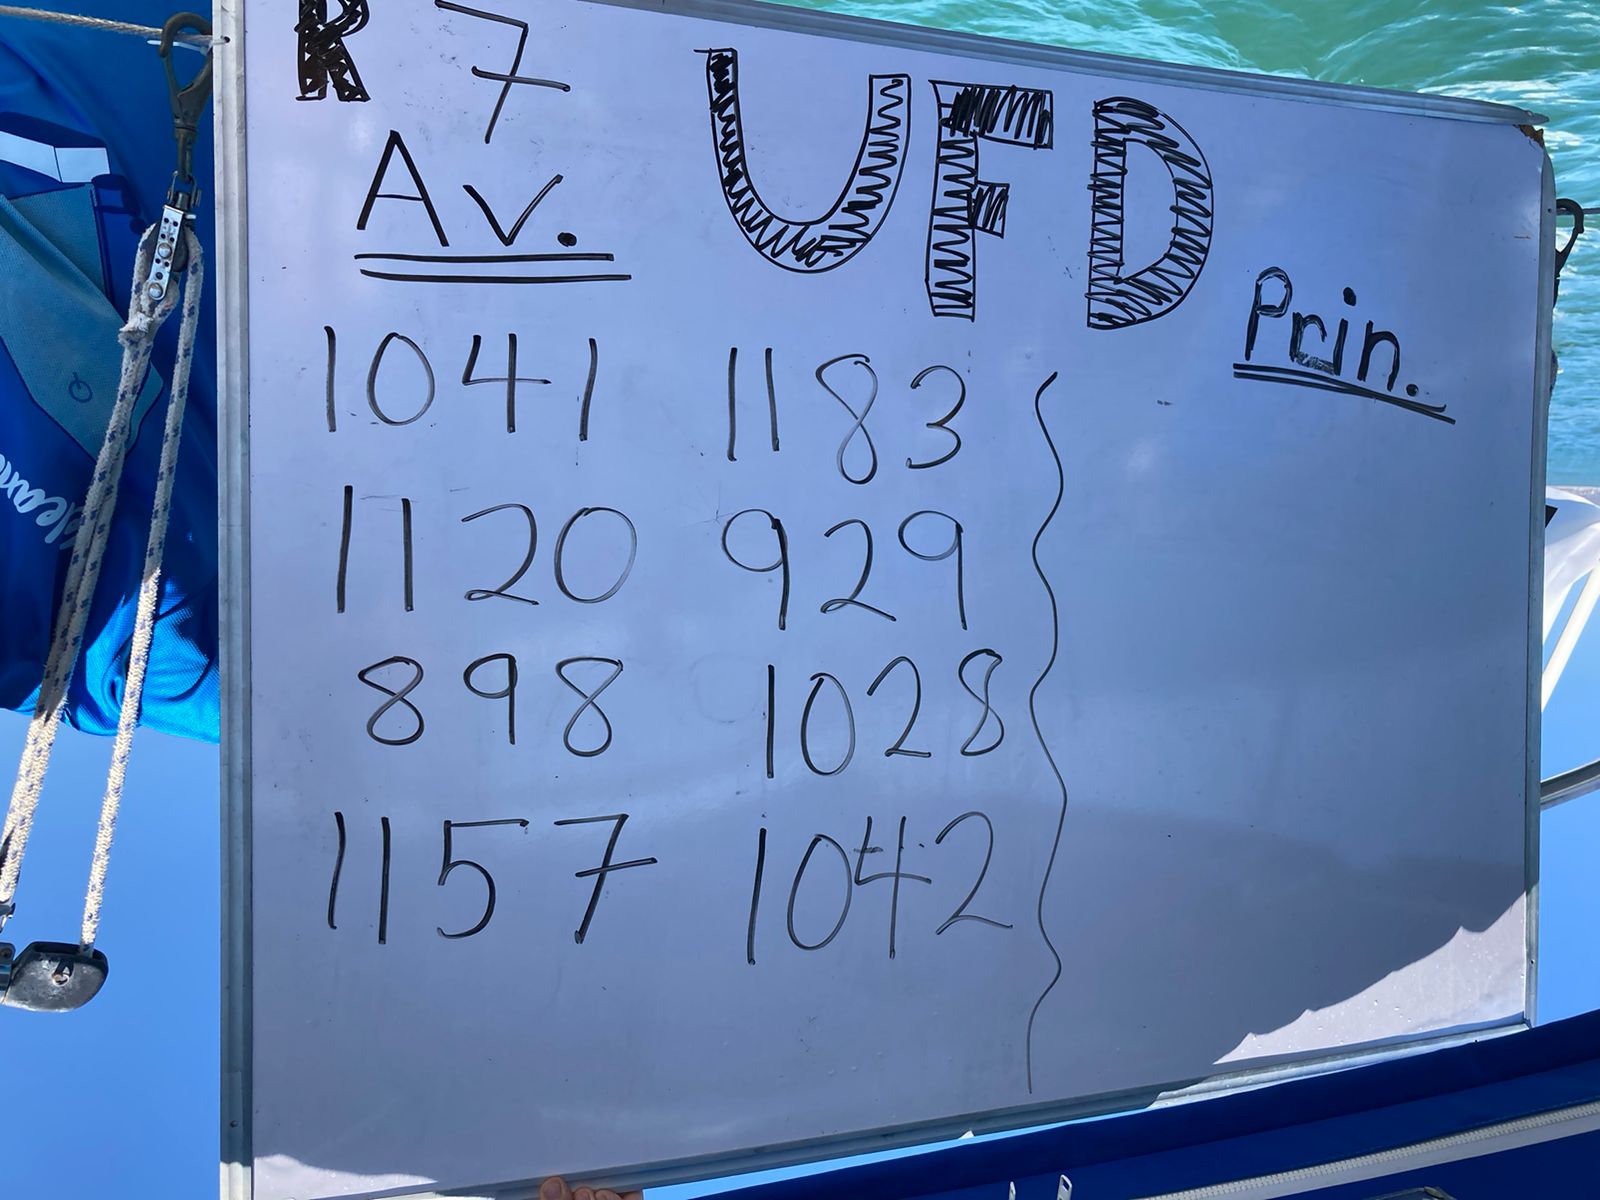 R 7 UFD
Av. Prin.
1041 1183
1120 929
898 1028
1157 1042